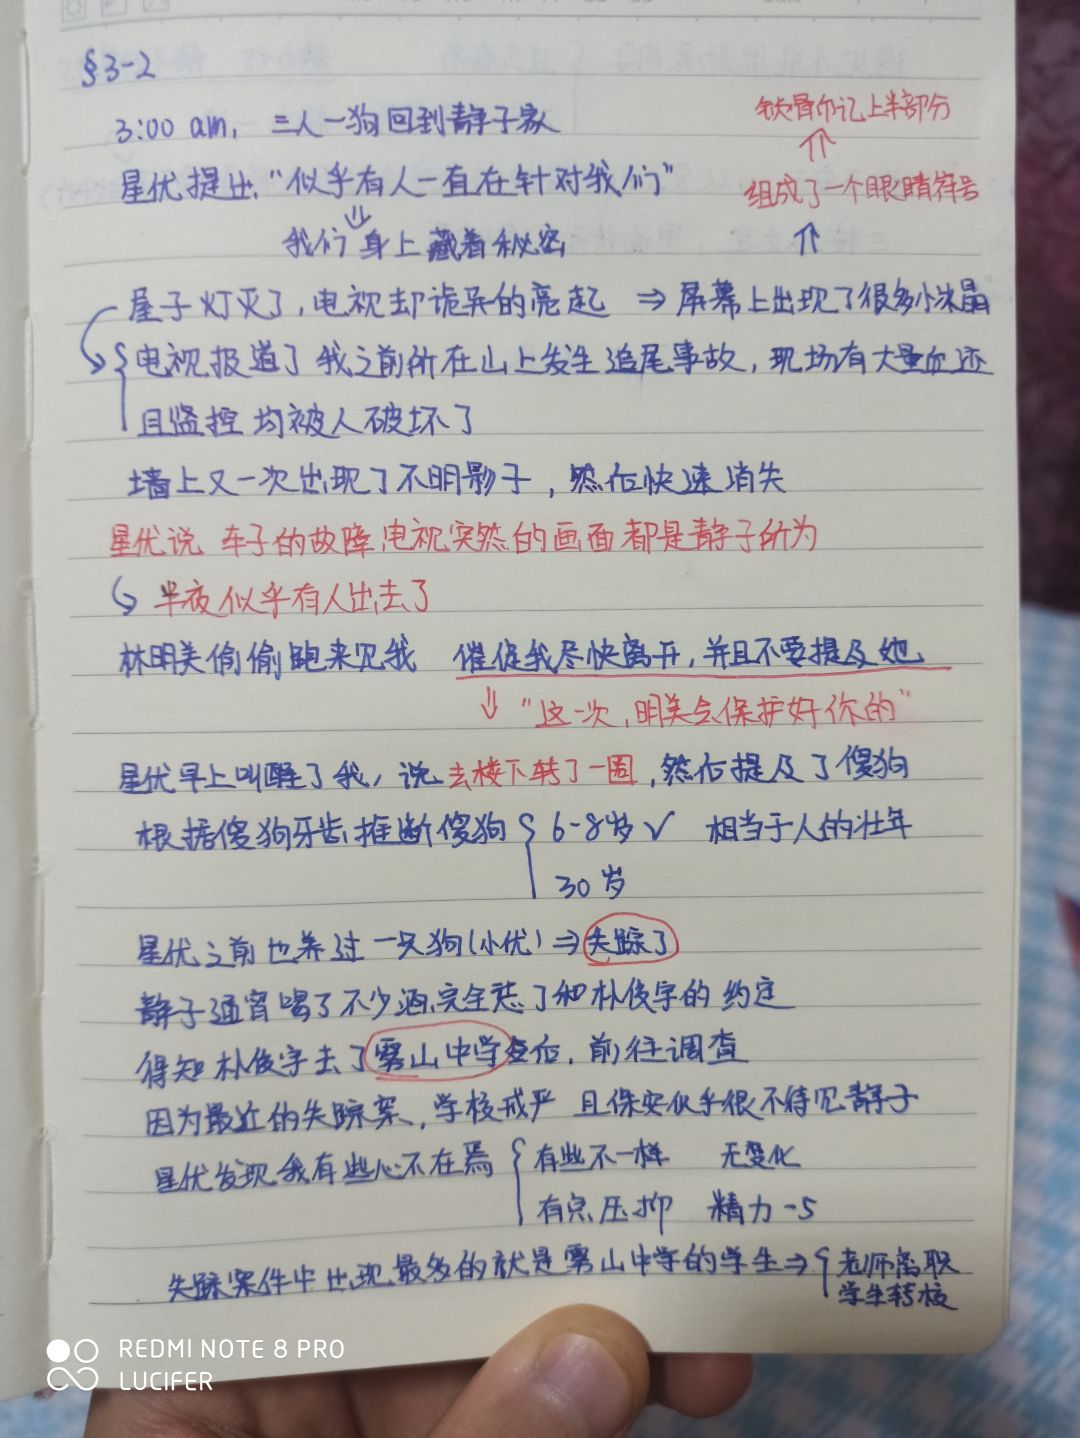 §3-2
3:00 am, 三人一狗回到静子家
锁骨印记上半部分
⇑
星优提出,"似乎有人一直在针对我们"
组成了一个眼睛符号
⇓
⇑
我们身上藏着秘密
屋子灯灭了,电视却诡异的亮起 ⇒ 屏幕上出现了很多小冰晶
电视报道了我之前所在山上发生追尾事故,现场有大量血迹
且监控均被人破坏了
墙上又一次出现了不明影子,然后快速消失
星优说 车子的故障,电视突然的画面都是静子所为
半夜似乎有人出去了
林明美偷偷跑来见我 催促我尽快离开,并且不要提及她
⇓ "这一次,明美会保护好你的"
星优早上叫醒了我,说去楼下转了一圈,然后提及了傻狗
根据傻狗牙齿推断傻狗 { 6-8岁 √ 相当于人的壮年
30岁
星优之前也养过一只狗(小优) ⇒ 失踪了
静子通宵喝了不少酒,完全忘了和朴俊宇的约定
得知朴俊宇去了雾山中学后,前往调查
因为最近的失踪案,学校戒严 且保安似乎很不待见静子
星优发现我有些心不在焉 { 有些不一样 无变化
有点压抑 精力-5
失踪案件中出现最多的就是雾山中学的学生 ⇒ { 老师离职
学生转校
REDMI NOTE 8 PRO
LUCIFER